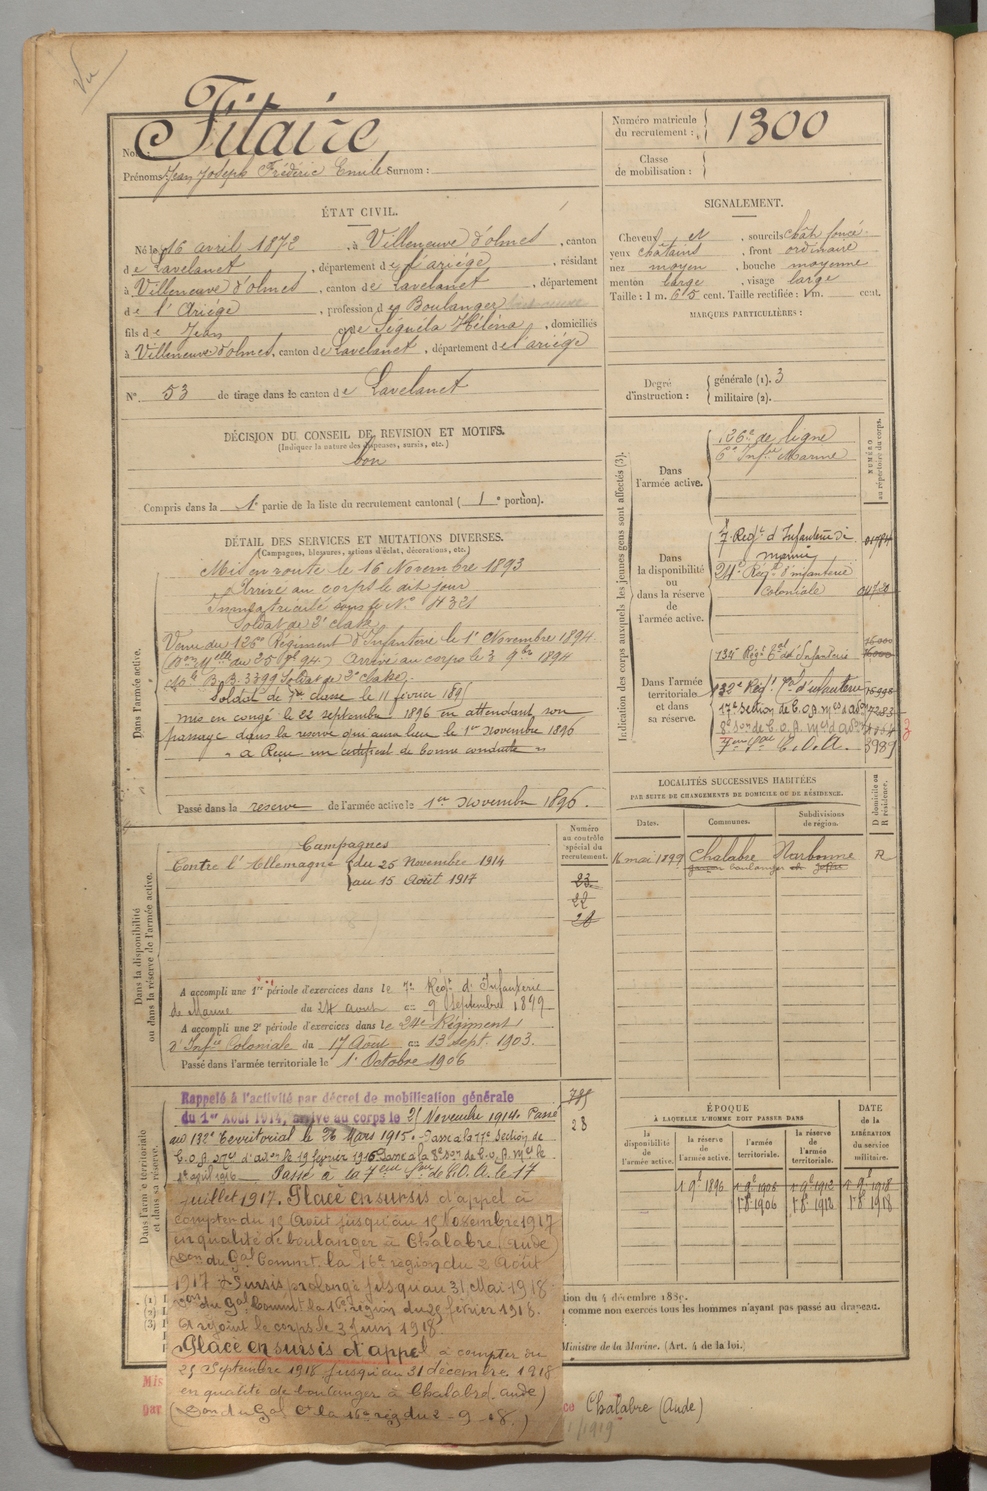 Vu
Nom : Fitaire
Prénoms : Jean Joseph Frédéric Emile Surnom :
Numéro matricule du recrutement : 1300
Classe de mobilisation :
ÉTAT CIVIL.
Né le 16 avril 1872, à Villeneuve d'olmes, canton
de Lavelanet, département de l'ariége, résidant
à Villeneuve d'olmes, canton de Lavelanet, département
de l'Ariége, profession de Boulanger
fils de Jean et de Séguéla Hélèna, domiciliés
à Villeneuve d'olmes, canton de Lavelanet, département de l'ariége
N° 53 de tirage dans le canton de Lavelanet
SIGNALEMENT.
Cheveux et, sourcils chât. foncé
yeux chatains, front ordinaire
nez moyen, bouche moyenne
menton large, visage large
Taille : 1 m. 65 cent. Taille rectifiée : 1 m. cent.
MARQUES PARTICULIÈRES :
Degré d'instruction : générale (1). 3
militaire (2).
DÉCISION DU CONSEIL DE REVISION ET MOTIFS.
(Indiquer la nature des dispenses, sursis, etc.)
bon
Compris dans la 1e partie de la liste du recrutement cantonal (1e portion).
DÉTAIL DES SERVICES ET MUTATIONS DIVERSES.
(Campagnes, blessures, actions d'éclat, décorations, etc.)
Dans l'armée active.
Mis en route le 16 Novembre 1893
Arrivé au corps le dit jour
Immatriculé sous le N° 4321
Soldat de 2e classe
Venu du 126e Régiment d'Infanterie le 1er Novembre 1894
Arrivé au corps le 3 9bre 1894
Soldat de 2e classe
Soldat de 1re classe le 11 février 1895
mis en congé le 22 septembre 1896 en attendant son
passage dans la reserve qui aura lieu le 1er Novembre 1896
" a Reçu un certificat de bonne conduite "
Passé dans la reserve de l'armée active le 1er Novembre 1896.
Indication des corps auxquels les jeunes gens sont affectés (3).
NUMÉRO au répertoire du corps.
Dans l'armée active.
126e de ligne
6e Infie Marine
Dans la disponibilité ou dans la réserve de l'armée active.
7e Regt d'Infanterie de marine
24e Regt d'infanterie Coloniale
Dans l'armée territoriale et dans sa réserve.
134e Régt tal d'Infanterie
132e Régt tal d'infanterie
17e Section de C.O.A.
8e Son de C.O.A.
7eme Son C.O.A. 3989
LOCALITÉS SUCCESSIVES HABITÉES
PAR SUITE DE CHANGEMENTS DE DOMICILE OU DE RÉSIDENCE.
Dates. Communes. Subdivisions de région. D domicile ou R résidence.
16 mai 1899 Chalabre Narbonne R
garçon boulanger
Dans la disponibilité ou dans la réserve de l'armée active.
Numéro au contrôle spécial du recrutement.
Campagnes
Contre l'Allemagne du 25 Novembre 1914
au 15 Août 1917
23
22
28
A accompli une 1re période d'exercices dans le 7e Régt d'Infanterie
de Marine du 24 aout au 9 Septembre 1899
A accompli une 2e période d'exercices dans le 24e Régiment
d'Infie Coloniale du 17 Août au 13 sept. 1903.
Passé dans l'armée territoriale le 1er Octobre 1906
Dans l'armée territoriale et dans sa réserve.
785
28
Rappelé à l'activité par décret de mobilisation générale
du 1er Août 1914, arrivé au corps le 25 Novembre 1914. Passé
au 132e Territorial le 26 Mars 1915. Passé à la 17e Section de
C.O.A. le 19 février 1916 Passé à la 8e Son de C.O.A. le
1er april 1916 Passé à la 7eme Son de C.O.A. le 17
juillet 1917. Placé en sursis d'appel à
compter du 15 Août jusqu'au 15 Novembre 1917
en qualité de boulanger à Chalabre (Aude)
Don du Gal Commt la 16e région du 2 Août
1917. Sursis prolongé jusqu'au 31 Mai 1918
Don du Gal Commt la 16e région du 28 février 1918.
A rejoint le corps le 3 Juin 1918
Placé en sursis d'appel à compter du
25 Septembre 1918 jusqu'au 31 décembre 1918
en qualité de boulanger à Chalabre (Aude)
(Don du Gal Ct la 16e rég du 2-9-18.)
ÉPOQUE
À LAQUELLE L'HOMME DOIT PASSER DANS
DATE de la LIBÉRATION du service militaire.
la disponibilité de l'armée active. la réserve de l'armée active. l'armée territoriale. la réserve de l'armée territoriale.
1 9e 1896 1 9e 1906 1 9e 1912 1 9e 1918
1 8e 1906 1 8e 1912 1 8e 1918
(1)
(2)
(3)
tion du 4 décembre 1889.
comme non exercés tous les hommes n'ayant pas passé au drapeau.
Ministre de la Marine. (Art. 4 de la loi.)
Mis
par
Chalabre (Aude)
/1919